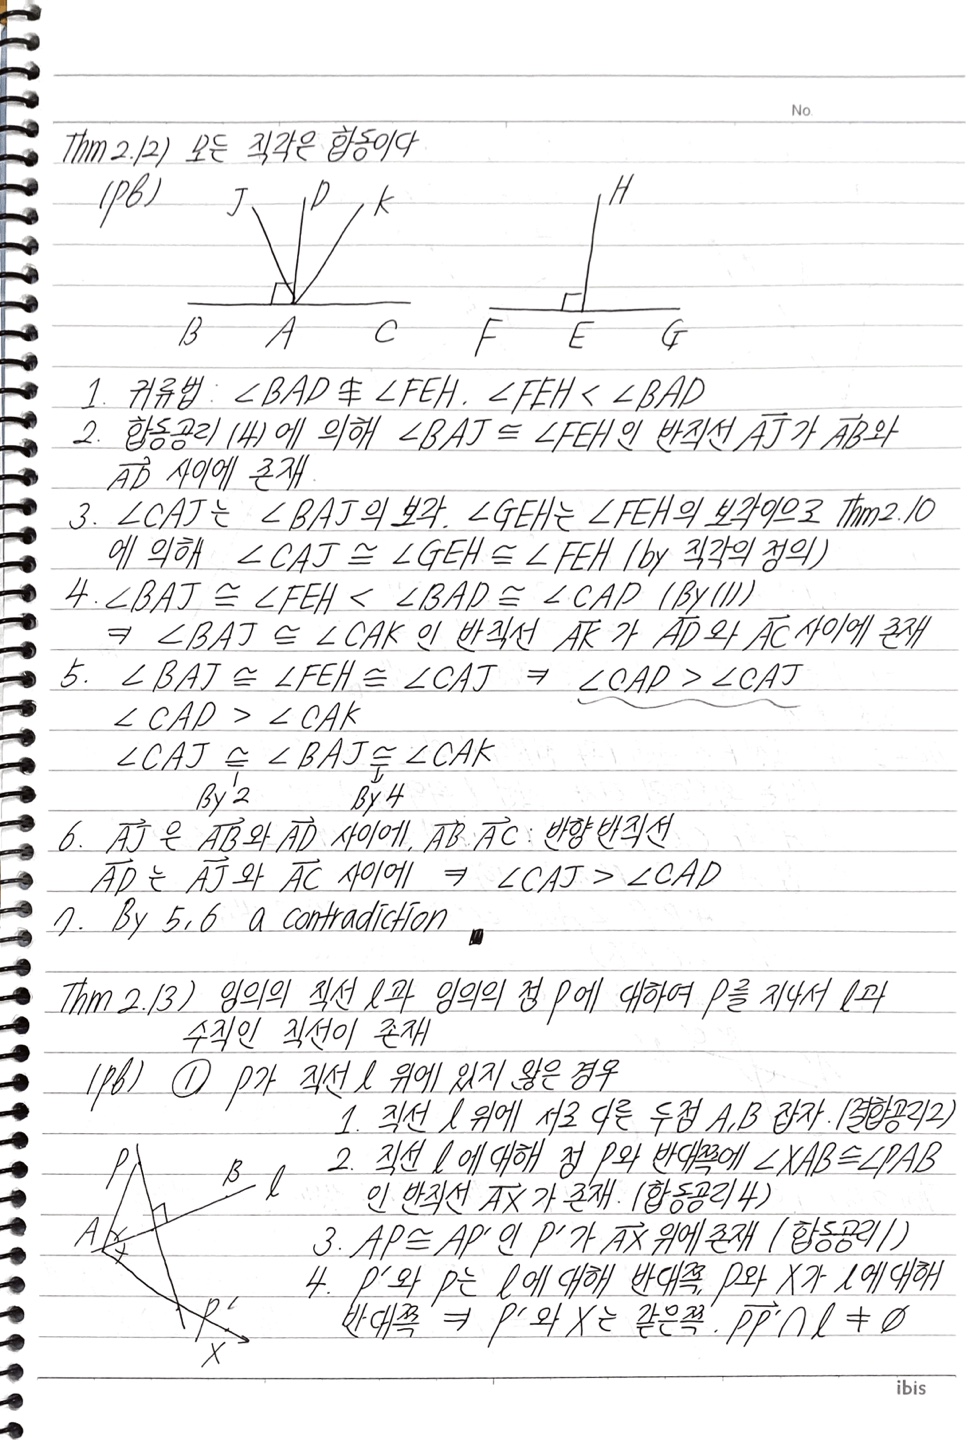 No
Thm 2.12) 모든 직각은 합동이다
(pf)
J D K H
B A C F E G
1. 귀류법 : ∠BAD ≇ ∠FEH. ∠FEH < ∠BAD
2. 합동공리 (4)에 의해 ∠BAJ ≅ ∠FEH인 반직선 AJ→가 AB→와
AD→ 사이에 존재
3. ∠CAJ는 ∠BAJ의 보각. ∠GEH는 ∠FEH의 보각이으로 Thm 2.10
에 의해 ∠CAJ ≅ ∠GEH ≅ ∠FEH (by 직각의 정의)
4. ∠BAJ ≅ ∠FEH < ∠BAD ≅ ∠CAD (By (1))
⇒ ∠BAJ ≅ ∠CAK 인 반직선 AK→가 AD→와 AC→ 사이에 존재
5. ∠BAJ ≅ ∠FEH ≅ ∠CAJ ⇒ ∠CAD > ∠CAJ
∠CAD > ∠CAK
∠CAJ ≅ ∠BAJ ≅ ∠CAK
By 2 By 4
6. AJ→은 AB→와 AD→ 사이에, AB→. AC→ : 반향반직선
AD→는 AJ→와 AC→ 사이에 ⇒ ∠CAJ > ∠CAD
7. By 5, 6 a contradiction
Thm 2.13) 임의의 직선 l과 임의의 점 P에 대하여 P를 지나서 l과
수직인 직선이 존재
(pf) ① P가 직선 l 위에 있지 않은 경우
1. 직선 l 위에 서로 다른 두점 A, B 잡자. (결합공리2)
2. 직선 l에 대해 점 P와 반대쪽에 ∠XAB≅∠PAB
인 반직선 AX→가 존재. (합동공리4)
3. AP≅AP'인 P'가 AX→위에 존재 (합동공리1)
4. P'와 P는 l에 대해 반대쪽, P와 X가 l에 대해
반대쪽 ⇒ P'와 X는 같은쪽. PP'→∩l ≠ ∅
P B l
A
P'
X
ibis